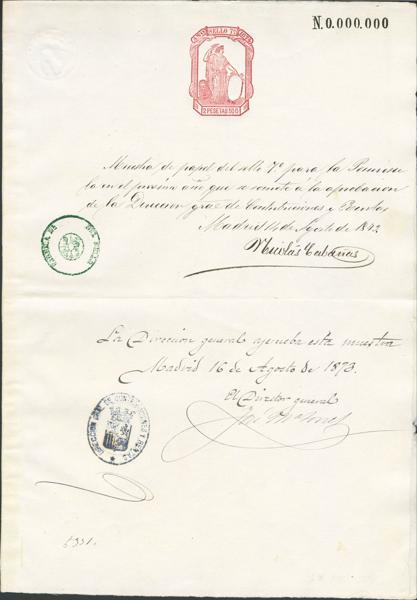 N.0.000.000
SELLO 7º
2 PESETAS 50 C
Muestra de papel del sello 7º para la Peninsu-
la en el próximo año que se somete á la aprobacion
de la Direccion gral de Contribuciones y Rentas
Madrid 14 de Agosto de 1873
Nicolás Cabañas
FABRICA DEL SELLO
La Dirección general aprueba esta muestra
Madrid 16 de Agosto de 1873.
El Director general
DIRECCION GRAL DE CONTRIBUCIONES Y RENTAS
5331.